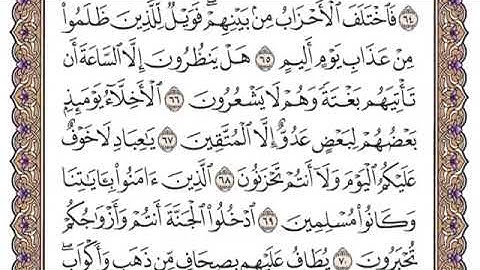 ٦٤ فَٱخْتَلَفَ ٱلْأَحْزَابُ مِنۢ بَيْنِهِمْ ۖ فَوَيْلٌ لِّلَّذِينَ ظَلَمُوا۟
مِنْ عَذَابِ يَوْمٍ أَلِيمٍ ٦٥ هَلْ يَنظُرُونَ إِلَّا ٱلسَّاعَةَ أَن
تَأْتِيَهُم بَغْتَةً وَهُمْ لَا يَشْعُرُونَ ٦٦ ٱلْأَخِلَّآءُ يَوْمَئِذٍۭ
بَعْضُهُمْ لِبَعْضٍ عَدُوٌّ إِلَّا ٱلْمُتَّقِينَ ٦٧ يَٰعِبَادِ لَا خَوْفٌ
عَلَيْكُمُ ٱلْيَوْمَ وَلَآ أَنتُمْ تَحْزَنُونَ ٦٨ ٱلَّذِينَ ءَامَنُوا۟ بِـَٔايَٰتِنَا
وَكَانُوا۟ مُسْلِمِينَ ٦٩ ٱدْخُلُوا۟ ٱلْجَنَّةَ أَنتُمْ وَأَزْوَٰجُكُمْ
تُحْبَرُونَ ٧٠ يُطَافُ عَلَيْهِم بِصِحَافٍ مِّن ذَهَبٍ وَأَكْوَابٍ ۖ